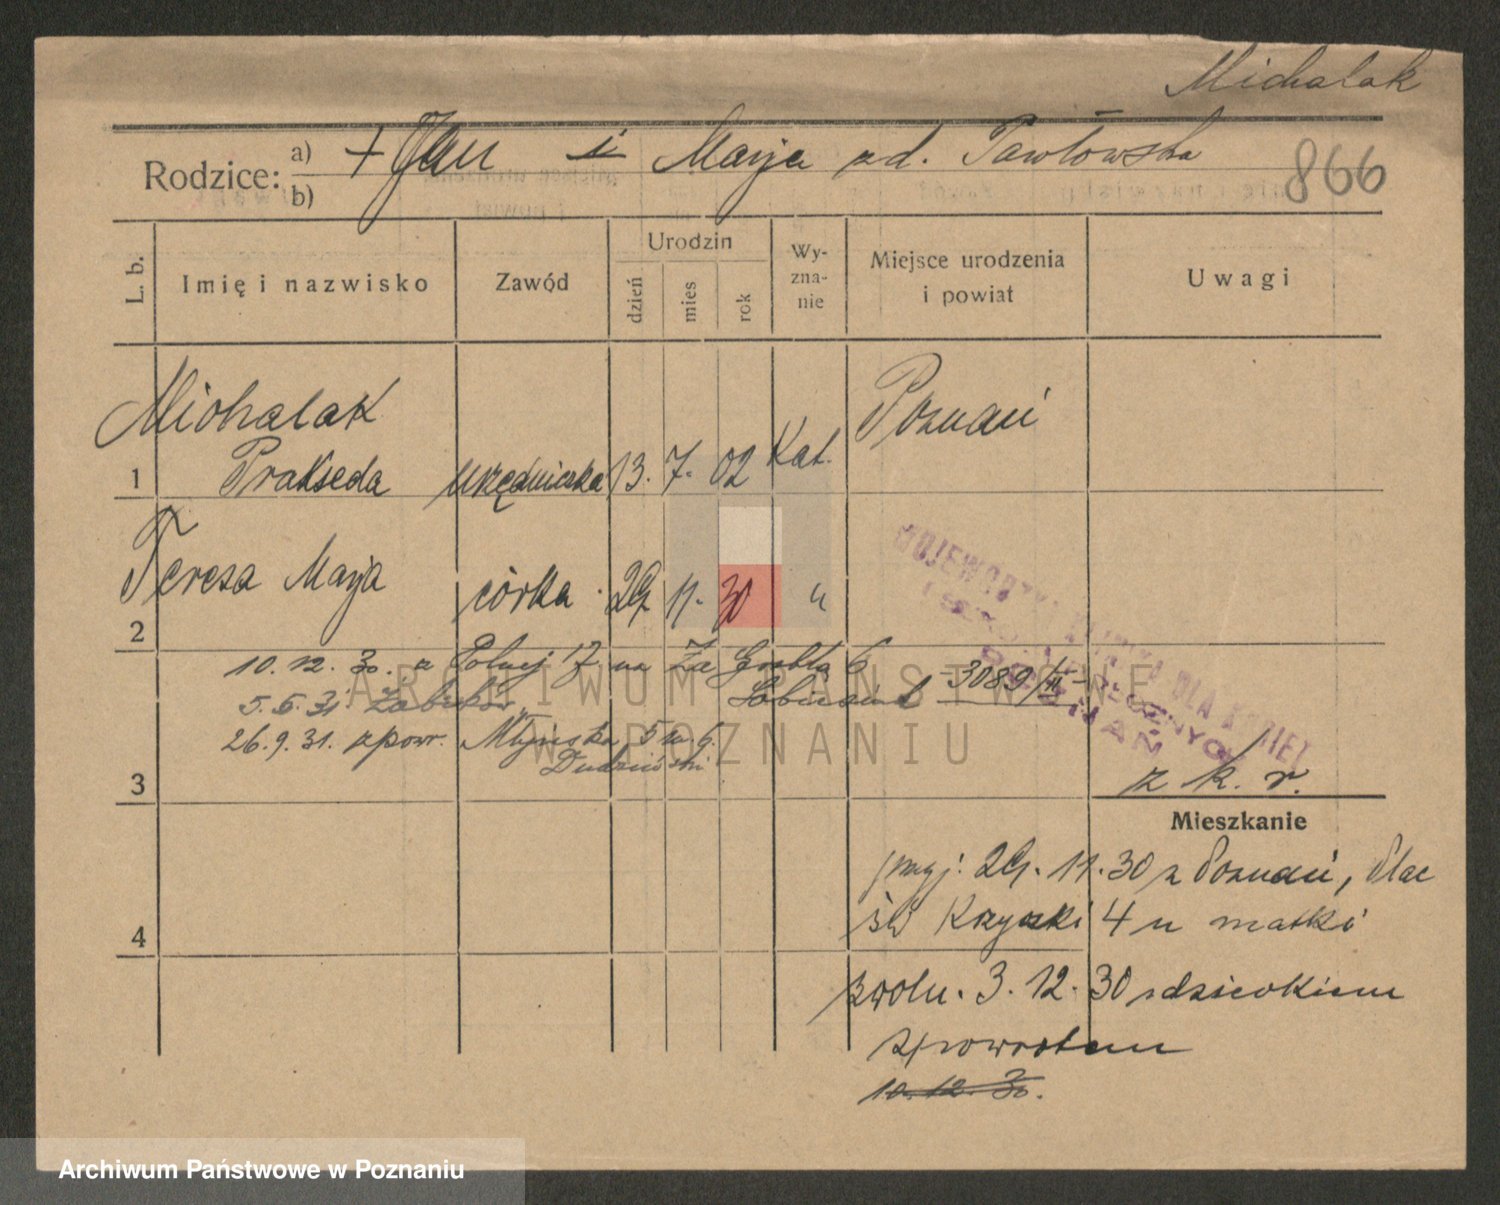 Michalak
Rodzice: a) + Jan i Marja zd. Pawłowska
b)
866
L. b.
Imię i nazwisko
Zawód
Urodzin
dzień
mies
rok
Wy-
zna-
nie
Miejsce urodzenia
i powiat
Uwagi
Michalak
1 Prakseda urzędniczka 13. 7. 02 Kat. Poznań
Teresa Marja córka 29 11. 30 "
2
WOJEWÓDZKA KLINIKA DLA KOBIET
POZNAŃ
10. 12. 30. z Polnej 17 na Za Groblą 6
5. 5. 31. Żabików 3089/
26. 9. 31. zpowr. Młyńska 5 m 6.
3
z k. r.
Mieszkanie
przyj. 29. 11. 30 z Poznań, Plac
św Krzyski 4 u matki
4
zwoln. 3. 12. 30 z dzieckiem
zpowrotem
10. 12. 30.
ARCHIWUM PAŃSTWOWE
W POZNANIU
Archiwum Państwowe w Poznaniu